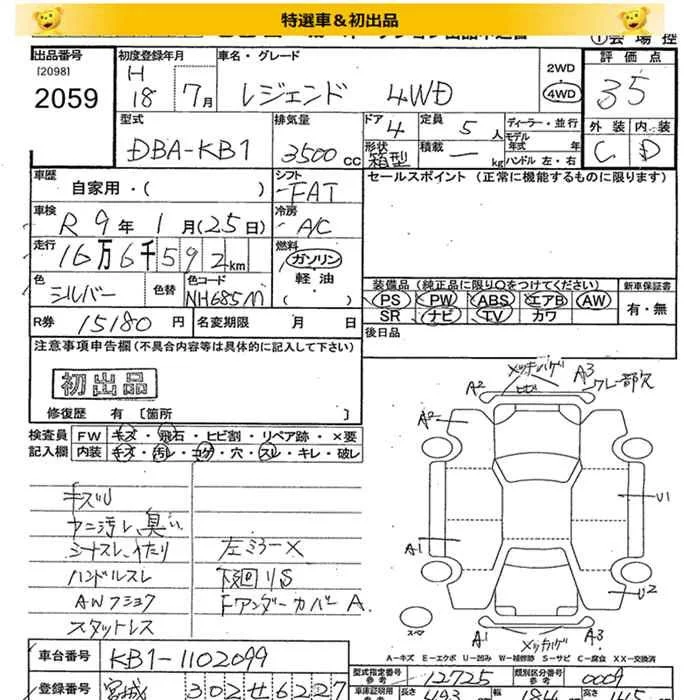 特選車&初出品
出品番号
[2098]
2059
初度登録年月
H
18 7月
車名・グレード
レジェンド 4WD
2WD
4WD
評価点
3.5
外装 内装
C D
型式
DBA-KB1
排気量
3500cc
ドア
4
形状
箱型
定員
5人
積載
ー kg
ディーラー・並行
モデル
年式 年
ハンドル 左・右
車歴
自家用・( )
シフト
FAT
セールスポイント (正常に機能するものに限ります)
車検
R 9年 1月(25日)
冷房
A/C
走行
16万6千592km
燃料
ガソリン
軽油
( )
色
シルバー
色替
色コード
NH685M
装備品 (純正品に限り○をつけてください)
PS PW ABS エアB AW
SR ナビ TV カワ
新車保証書
有・無
R券 15180円
名変期限 月 日
後日品
注意事項申告欄(不具合内容等は具体的に記入して下さい)
初出品
修復歴 有 [箇所 ]
検査員
記入欄
FW キズ・飛石・ヒビ割・リペア跡・×要
内装 キズ・汚レ・コゲ・穴・スレ・キレ・破レ
キズU
ヤニ汚レ、臭い
シートスレ、イたり
ハンドルスレ
AWフショク
スタットレス
左ミラーX
下廻りS
Fアンダーカバー A.
メッキハゲ
A2
ヒビ
A3
グレー部欠
A2
U1
A1
U2
スマ
A1
メッキハゲ
A3
A-キズ E-エクボ U-凹み W-補修跡 S-サビ C-腐食 XX-交換済
車台番号
KB1-1102099
登録番号
宮城 302 せ 6227
型式指定番号
参考
12725
類別区分番号
参考
0009
車庫証明用
参考
長さ
493
幅
184
高さ
145